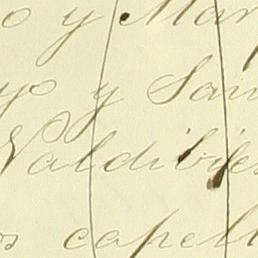 o y Mar
yo y San
Valdibies
os capell